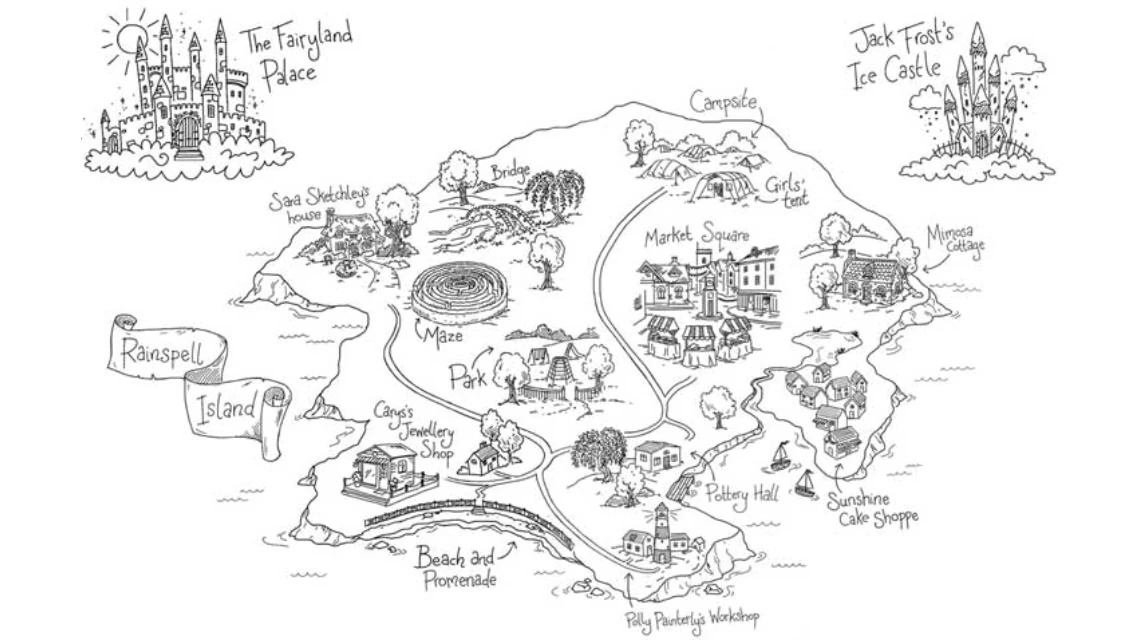 The Fairyland
Palace
Jack Frost's
Ice Castle
Campsite
Bridge
Girls'
tent
Sara Sketchley's
house
Market Square
Mimosa
Cottage
Maze
Rainspell
Island
Park
Carys's
Jewellery
Shop
Pottery Hall
Sunshine
Cake Shoppe
Beach and
Promenade
Polly Painterly's Workshop